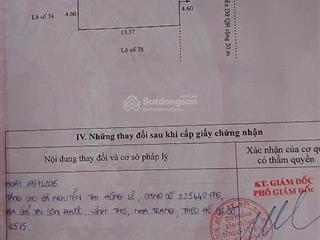 Lô số 74
4.60
4.60
13.37
Lô số 78
Dự QH rộng 20 m
Batdongsan
IV. Những thay đổi sau khi cấp giấy chứng nhận
Nội dung thay đổi và cơ sở pháp lý
Xác nhận của cơ q
có thẩm quyền
KT. GIÁM ĐỐC
PHÓ GIÁM ĐỐ
NGÀY
CHO BÀ NGUYỄN THỊ HỒNG LÊ, CMND SỐ
ĐỊA CHỈ TẠI SƠN PHƯỚC, THỌ, NHA TRANG, THEO HỒ SƠ SỐ